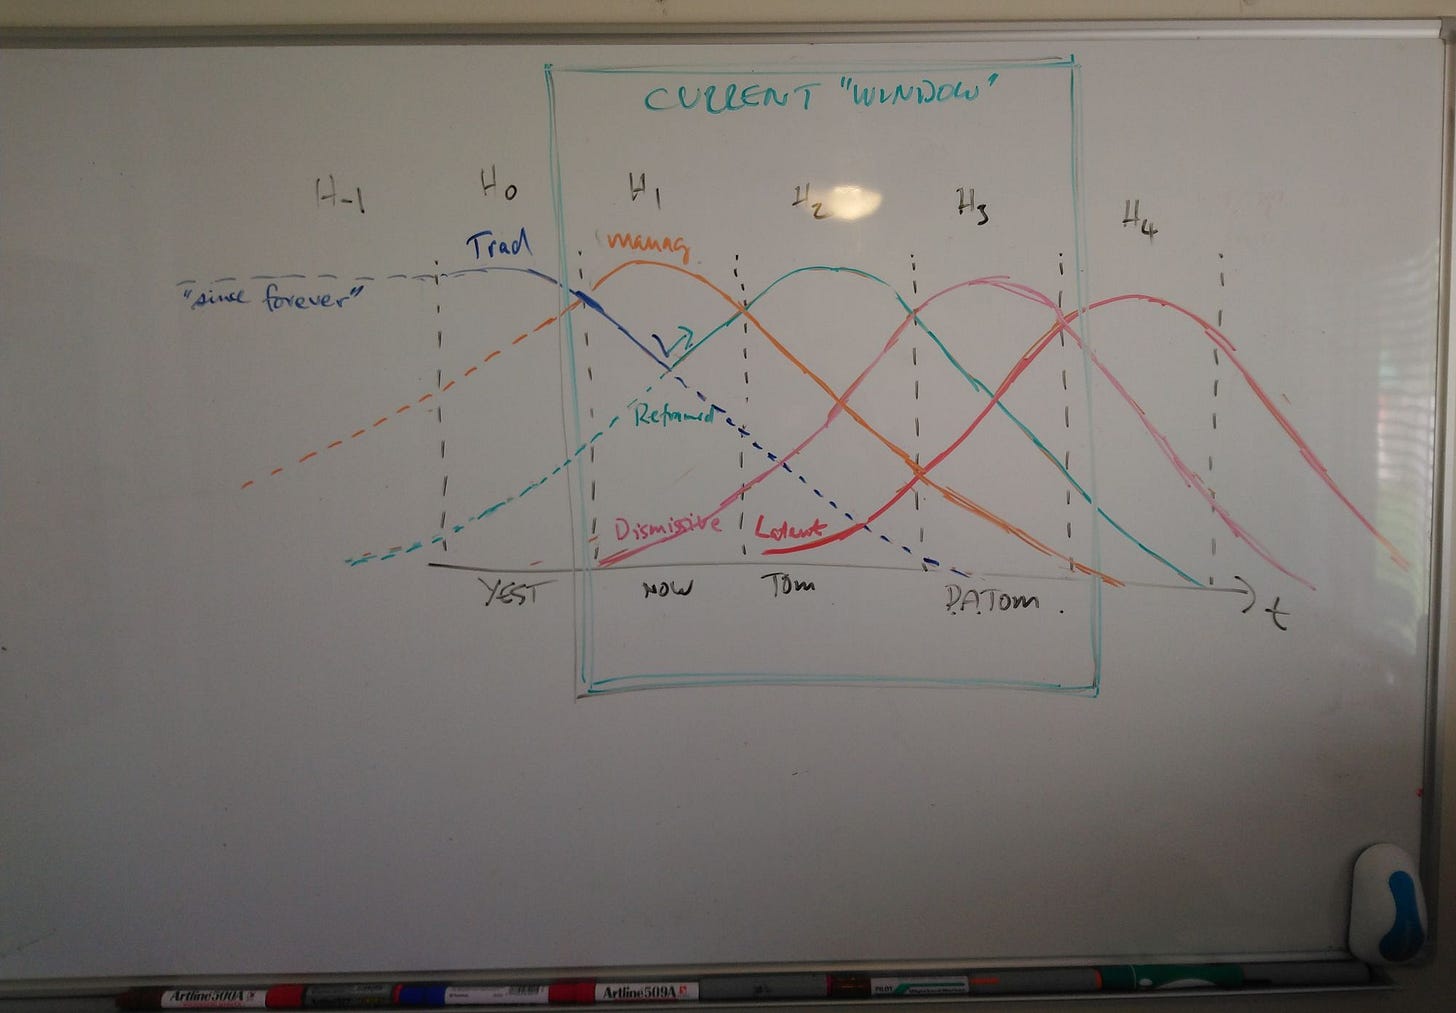 CURRENT "WINDOW"
H-1 H0 H1 H2 H3 H4
Trad manag.
"since forever"
Reframed
Dismissive Latent
YEST NOW TOM D.A.TOM.
t
Artline 500A
Artline 509A
PILOT